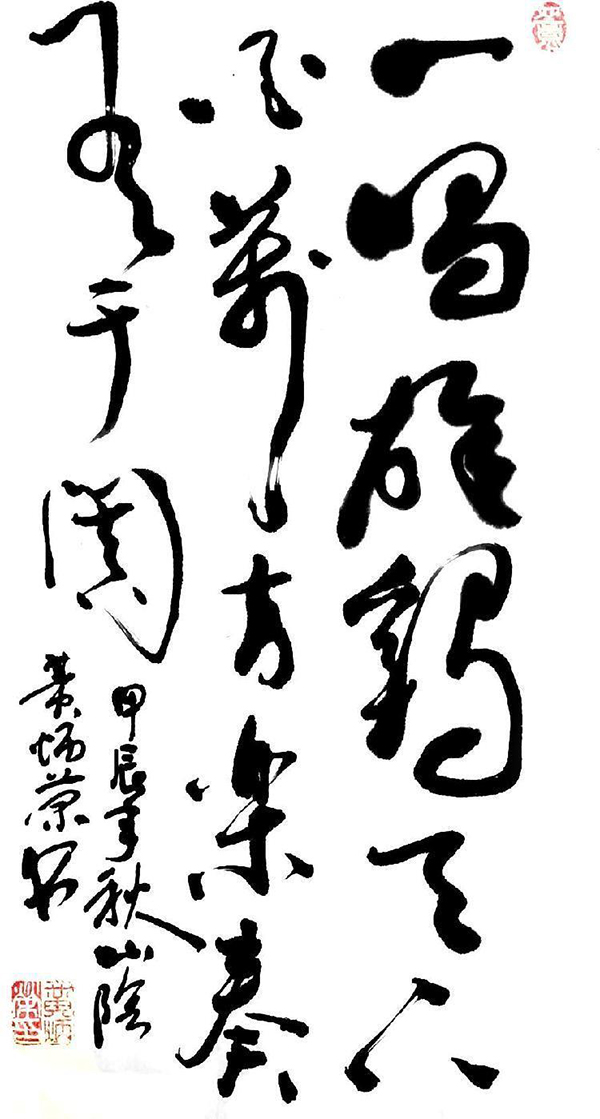 一唱雄鷄天下
白萬方楽奏
有于阗
甲辰年秋山陰
黄炳荣书